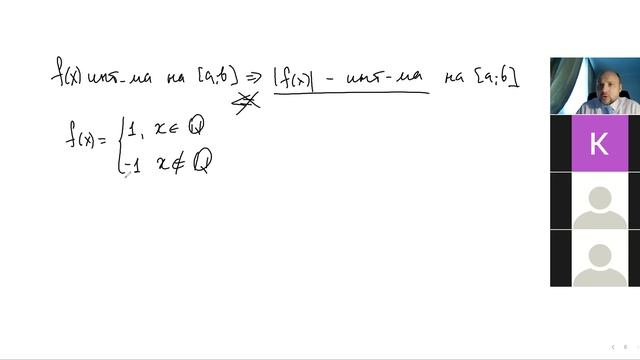 f(x) инт-ма на [a;b] ⇒ |f(x)| - инт-ма на [a;b]
⇍
f(x) = { 1, x ∈ ℚ
-1 x ∉ ℚ
K